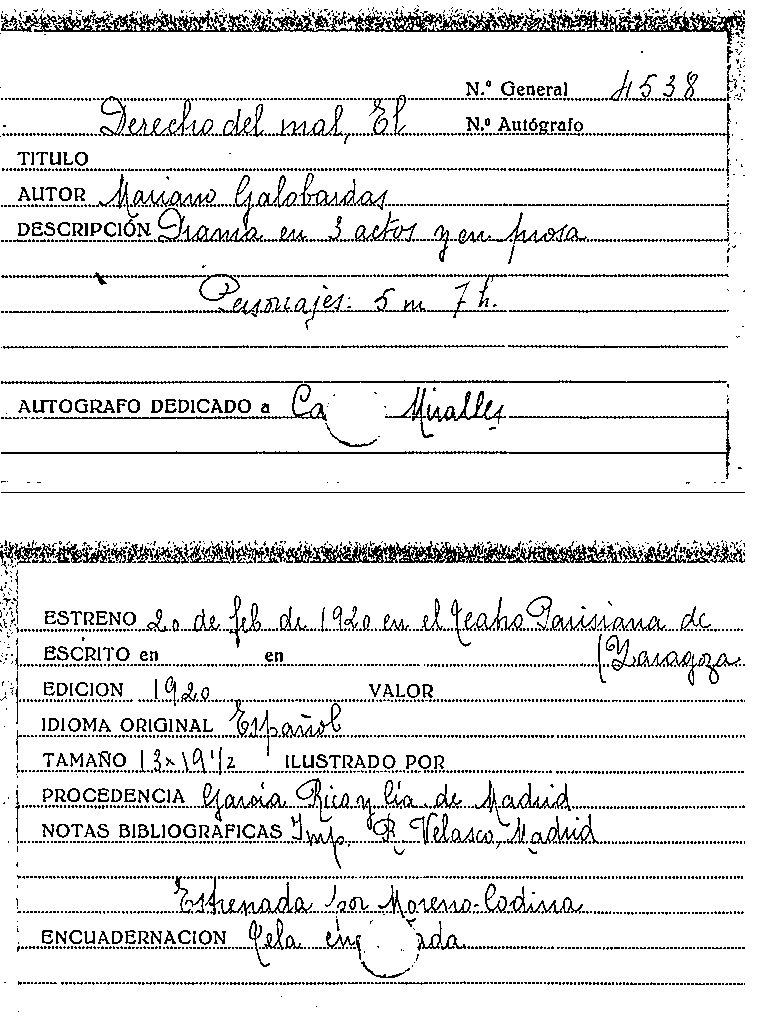 N.º General 4538
Derecho del mal, El N.º Autógrafo
TITULO
AUTOR Mariano Galobardas
DESCRIPCIÓN Drama en 3 actos y en prosa
Personajes: 5 m 7 h.
AUTOGRAFO DEDICADO a Ca Miralles
ESTRENO 20 de feb de 1920 en el Teatro Parisiana de
ESCRITO en en (Zaragoza
EDICION 1920 VALOR
IDIOMA ORIGINAL Español
TAMAÑO 13x19 1/2 ILUSTRADO POR
PROCEDENCIA García Rico y Cía de Madrid
NOTAS BIBLIOGRAFICAS Imp. R. Velasco, Madrid
Estrenada por Moreno-Codina
ENCUADERNACION Tela